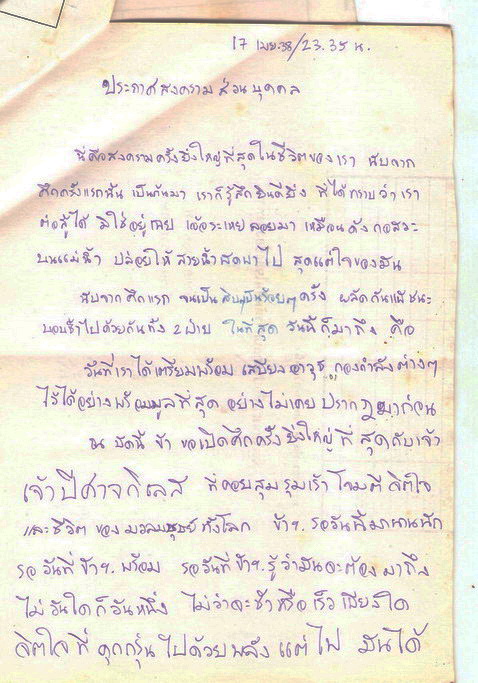 17 เมย.38/23.35 น.
ประกาศสงครามส่วนบุคคล
นี่คือสงครามครั้งยิ่งใหญ่ที่สุดในชีวิตของเรา นับจาก
ศึกครั้งแรกนั้น เป็นต้นมา เราก็รู้สึกยินดียิ่ง ที่ได้ทราบว่าเรา
ต่อสู้ได้ มิใช่อยู่เฉย เรื่อยลอยมา เหมือนดังกอสวะ
บนแม่น้ำ ปล่อยให้สายน้ำพัดพาไป สุดแต่ใจของมัน
นับจากศึกแรก จนเป็นสิบๆเป็นร้อยๆครั้ง ผลัดกันแพ้ชนะ
บอบช้ำไปด้วยกันทั้ง 2 ฝ่าย ในที่สุด วันนี้ก็มาถึง คือ
วันที่เราได้เตรียมพร้อม เสบียง อาวุธ กองกำลังต่างๆ
ไว้ได้อย่างพร้อมมูลที่สุด อย่างไม่เคยปรากฏมาก่อน
ณ บัดนี้ ข้า ขอเปิดศึกครั้งยิ่งใหญ่ที่สุดกับเจ้า
เจ้าปีศาจกิเลส ที่คอยสุมรุมเร้า โจมตี จิตใจ
และชีวิต ของมวลมนุษย์ทั้งโลก ข้าฯ รอวันนี้มานานนัก
รอวันที่ข้าฯ พร้อม รอวันที่ข้าฯ รู้ว่ามันจะต้องมาถึง
ไม่วันใดก็วันหนึ่ง ไม่ว่าจะช้าหรือเร็วเพียงใด
จิตใจที่คุกกรุ่นไปด้วยพลังแต่ไฟ มันได้